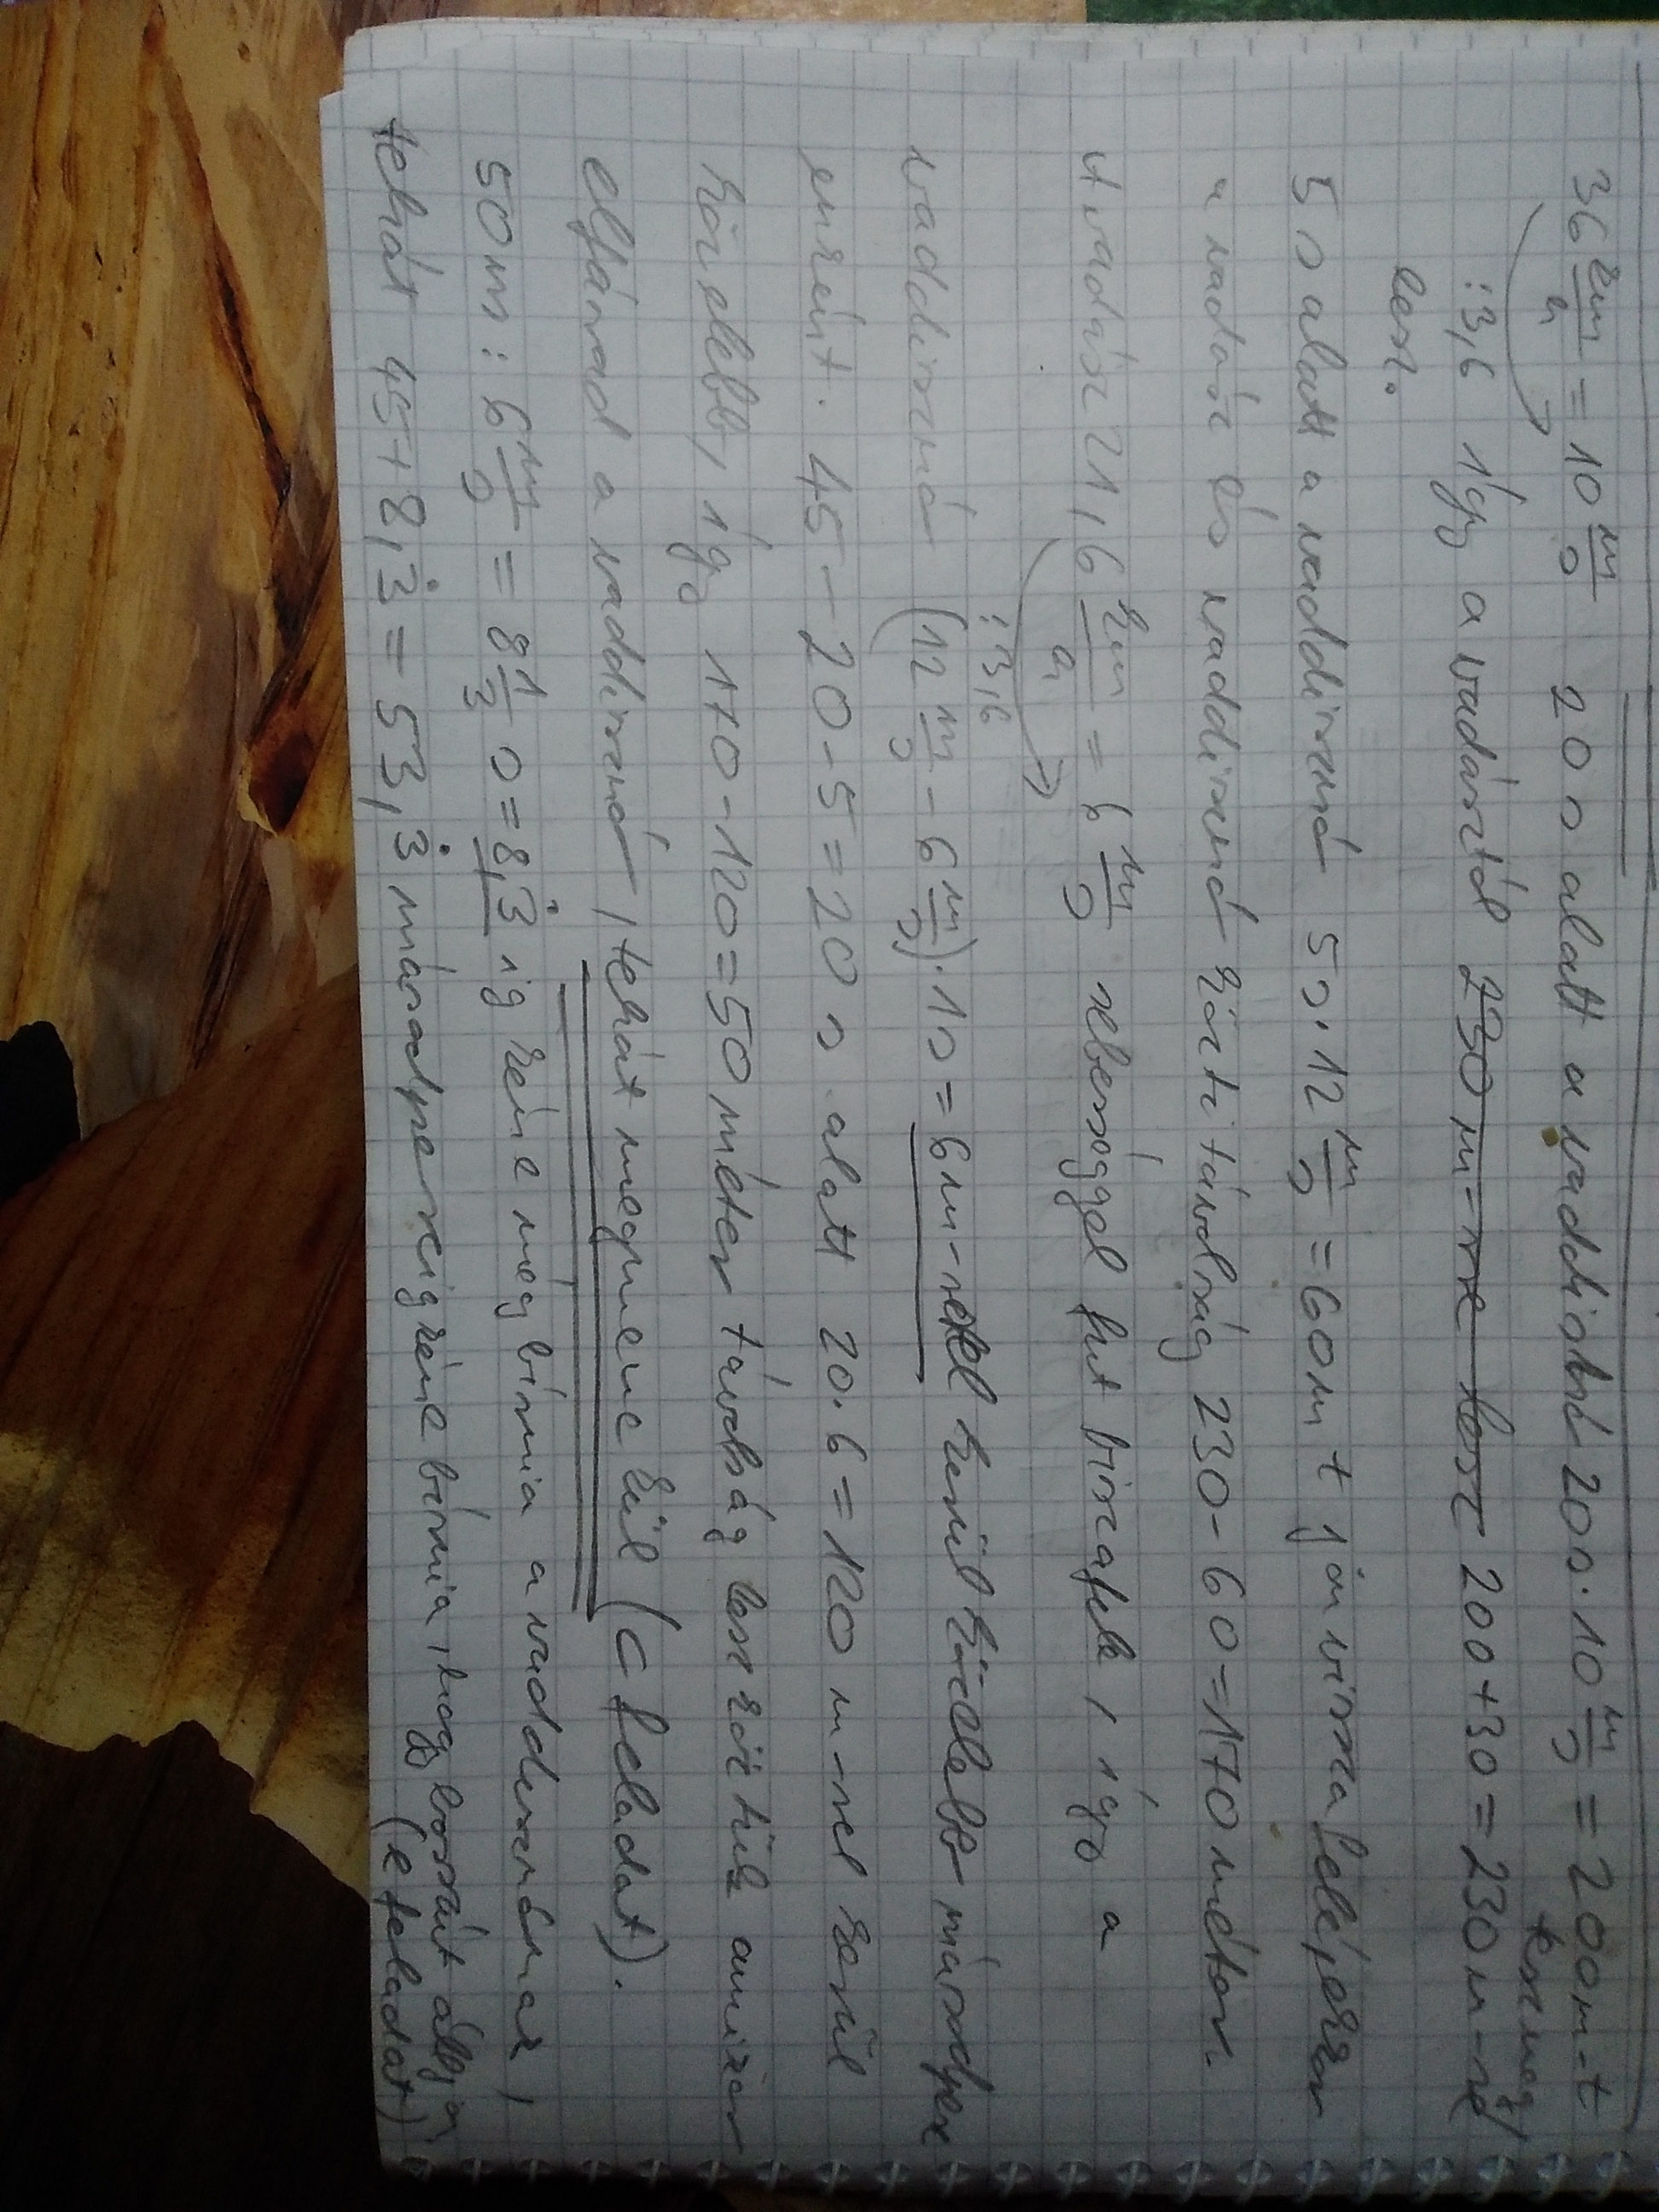 36 km/h = 10 m/s 20 s alatt a vaddisznó 20 s · 10 m/s = 200 m-t
tesz meg,
:3,6 így a vadásztól 230 m-re lesz 200+30=230 m-re
lesz.
5 s alatt a vaddisznó 5 s · 12 m/s = 60 m t jön visszafelé, ekkor
a vadász és vaddisznó közti távolság 230-60=170 méter.
A vadász 21,6 km/h = 6 m/s sebességgel fut visszafelé, így a
:3,6
vaddisznó (12 m/s - 6 m/s) · 1 s = 6 m-rel kerül közelebb másodperc
enként. 45-20-5=20 s alatt 20·6=120 m-rel kerül
közelebb, így 170-120=50 méter távolság lesz köztük amikor
elfárad a vaddisznó, tehát megmenekül (c feladat).
50 m : 6 m/s = 8 1/3 s = 8,3̇ ig kéne még bírnia a vaddisznónak,
tehát 45+8,3̇ = 53,3̇ másodpercig kéne bírnia, hogy bosszút álljon
(e feladat)